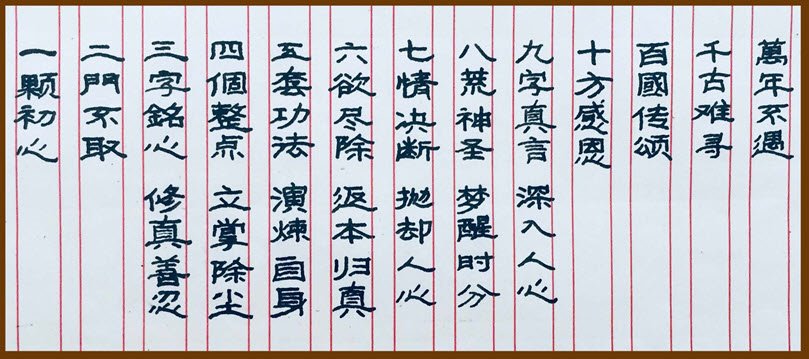 萬年不遇
千古难寻
百國传颂
十方感恩
九字真言 深入人心
八荒神圣 梦醒时分
七情决断 抛却人心
六欲尽除 返本归真
五套功法 演煉自身
四個整点 立掌除尘
三字銘心 修真善忍
二門不取
一颗初心